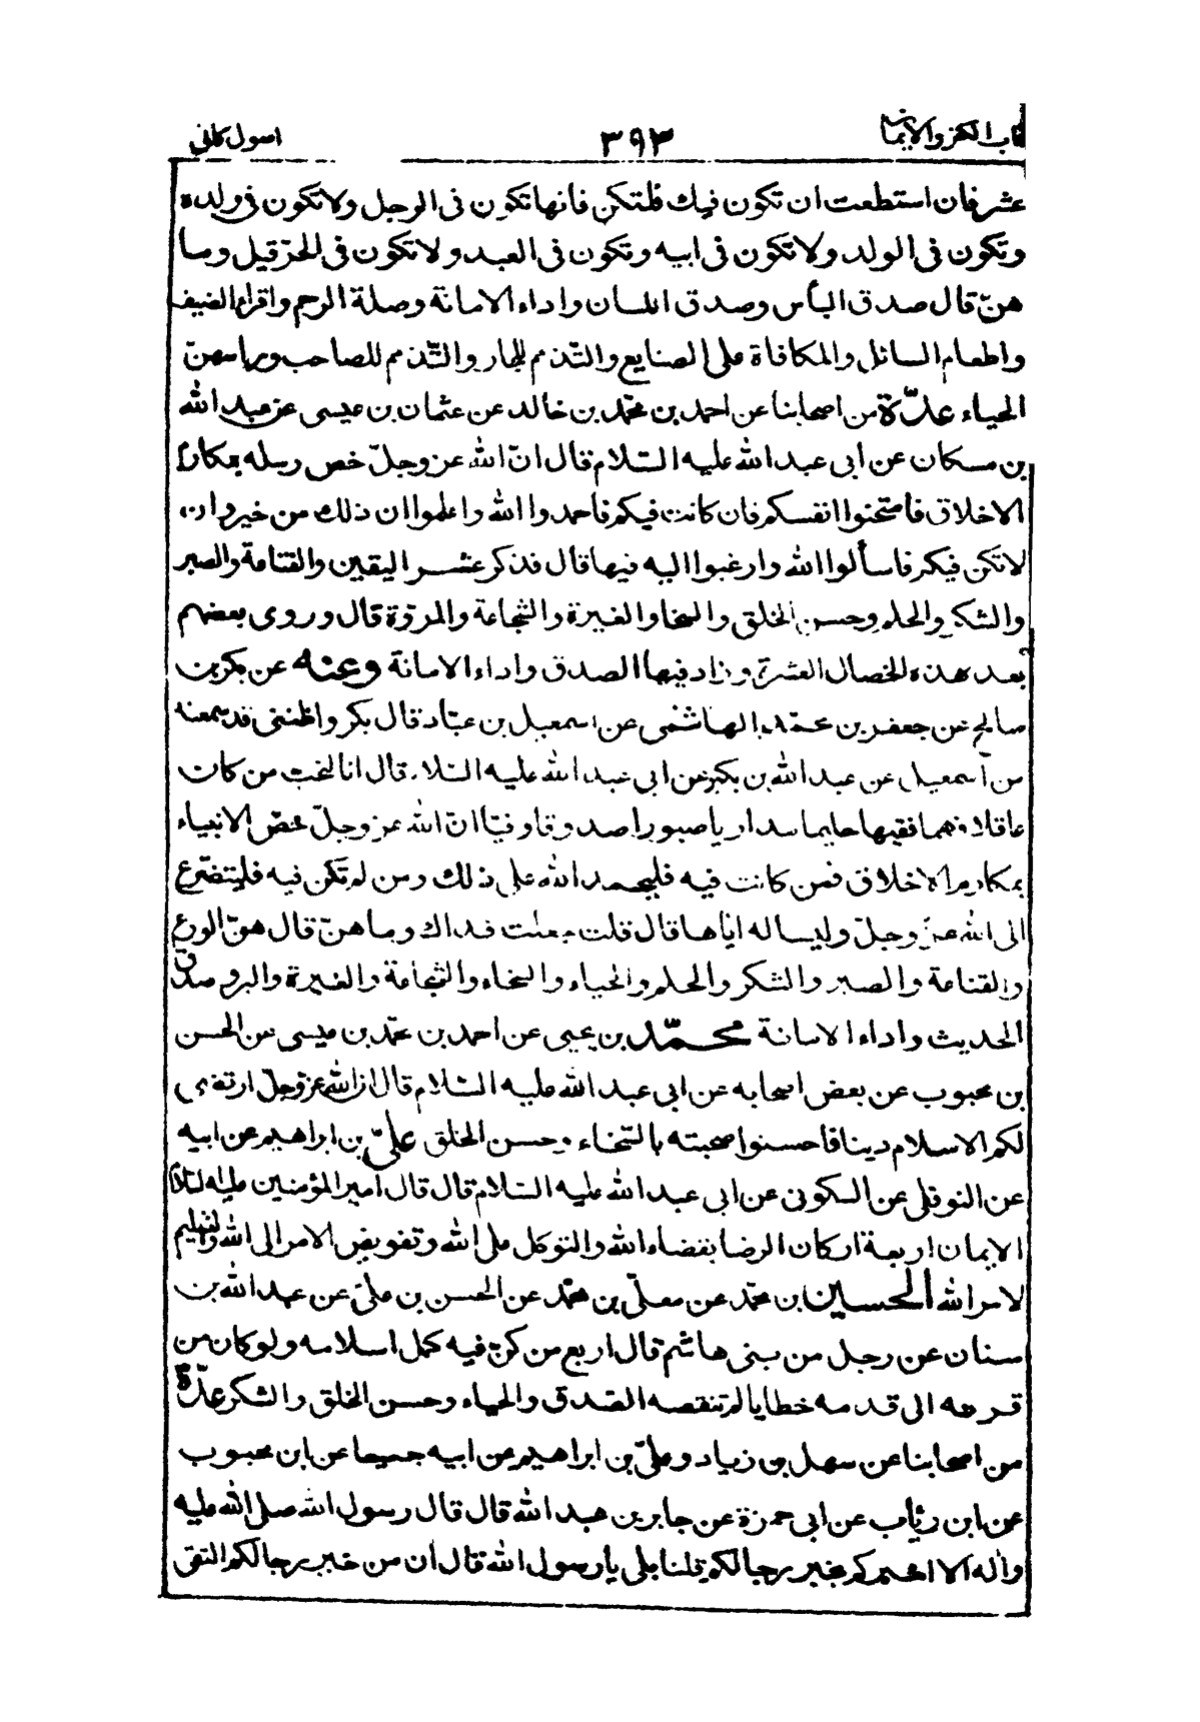 كتاب الكفر والايمان ٣٩٣ اصول كافى
عشر فان استطعت ان تكون فيك فلتكن فانها تكون فى الرجل ولا تكون فى ولده
وتكون فى الولد ولا تكون فى ابيه وتكون فى العبد ولا تكون فى الحرّ قيل وما
هنّ قال صدق البأس وصدق اللسان واداء الامانة وصلة الرحم واقراء الضيف
واطعام السائل والمكافاة على الصنايع والتذمم للجار والتّذمم للصاحب وراسهنّ
الحياء عدّة من اصحابنا عن احمد بن محمّد بن خالد عن عثمان بن عيسى عن عبد الله
بن مسكان عن ابى عبد الله عليه السّلام قال انّ الله عزوجلّ خص رسله بمكارم
الاخلاق فامتحنوا انفسكم فان كانت فيكم فاحمدوا الله واعلموا ان ذلك من خير وان
لا تكن فيكم فاسألوا الله وارغبوا اليه فيها قال فذكر عشر اليقين والقناعة والصبر
والشكر والحلم وحسن الخلق والسخا والغيرة والشّجاعة والمروّة قال وروى بعضهم
بعد هذه الخصال العشرة وزاد فيها الصدق واداء الامانة وعنه عن بكر بن
صالح عن جعفر بن محمّد الهاشمى عن اسمعيل بن عبّاد قال بكر واظننى قد سمعته
من اسمعيل عن عبد الله بن بكير عن ابى عبد الله عليه السّلام قال انا لنحبّ من كان
عاقلا فهما فقيها حليما مداريا صبورا صدوقا وفيّا انّ الله عزوجلّ خصّ الانبياء
بمكارم الاخلاق فمن كانت فيه فليحمد الله على ذلك ومن لم تكن فيه فليتضرّع
الى الله عزّ وجلّ وليساله اياها قال قلت جعلت فداك وما هنّ قال هنّ الورع
والقناعة والصبر والشكر والحلم والحياء والسخاء والشّجاعة والغيرة والبر وصدق
الحديث واداء الامانة محمّد بن يحيى عن احمد بن محمّد بن عيسى عن الحسن
بن محبوب عن بعض اصحابه عن ابى عبد الله عليه السّلام قال ان الله عزوجلّ ارتضى
لكم الاسلام دينا فاحسنوا صحبته بالسّخاء وحسن الخلق علىّ بن ابراهيم عن ابيه
عن النوفلى عن السكونى عن ابى عبد الله عليه السّلام قال قال امير المؤمنين عليه السّلام
الايمان اربعة اركان الرضا بقضاء الله والتوكل على الله وتفويض الامر الى الله والتسليم
لامر الله الحسين بن محمّد عن معلّى بن محمّد عن الحسن بن علىّ عن عبد الله بن
سنان عن رجل من بنى هاشم قال اربع من كنّ فيه كمل اسلامه ولو كان من
قرنه الى قدمه خطايا لم تنقصه الصّدق والحياء وحسن الخلق والشكر عدّة
من اصحابنا عن سهل بن زياد وعلىّ بن ابراهيم عن ابيه جميعا عن ابن محبوب
عن ابن رئاب عن ابى حمزة عن جابر بن عبد الله قال قال رسول الله صلى الله عليه
واله الا اخبركم بخير رجالكم قلنا بلى يا رسول الله قال ان من خير رجالكم التقى